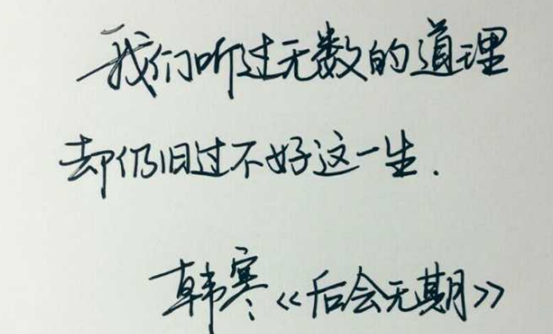 我们听过无数的道理
却仍旧过不好这一生.
韩寒《后会无期》